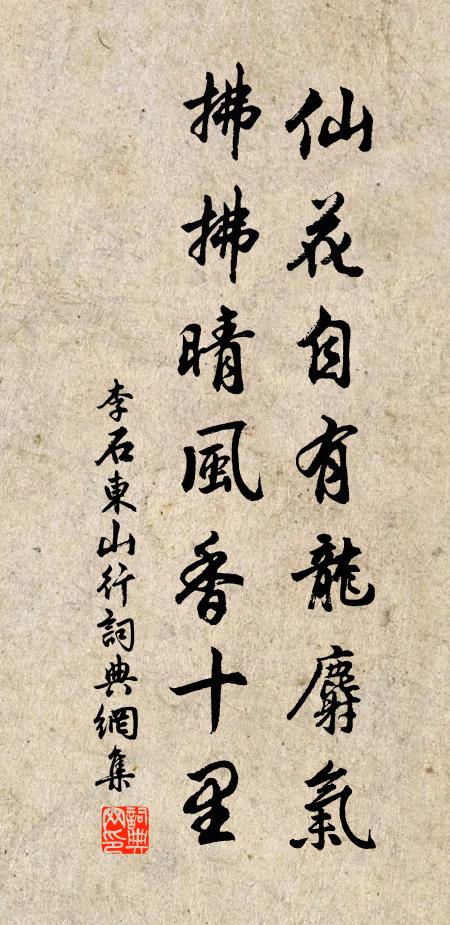 仙花自有龍麝氣
拂拂晴風香十里
李石東山行詞典網集
詞典網印